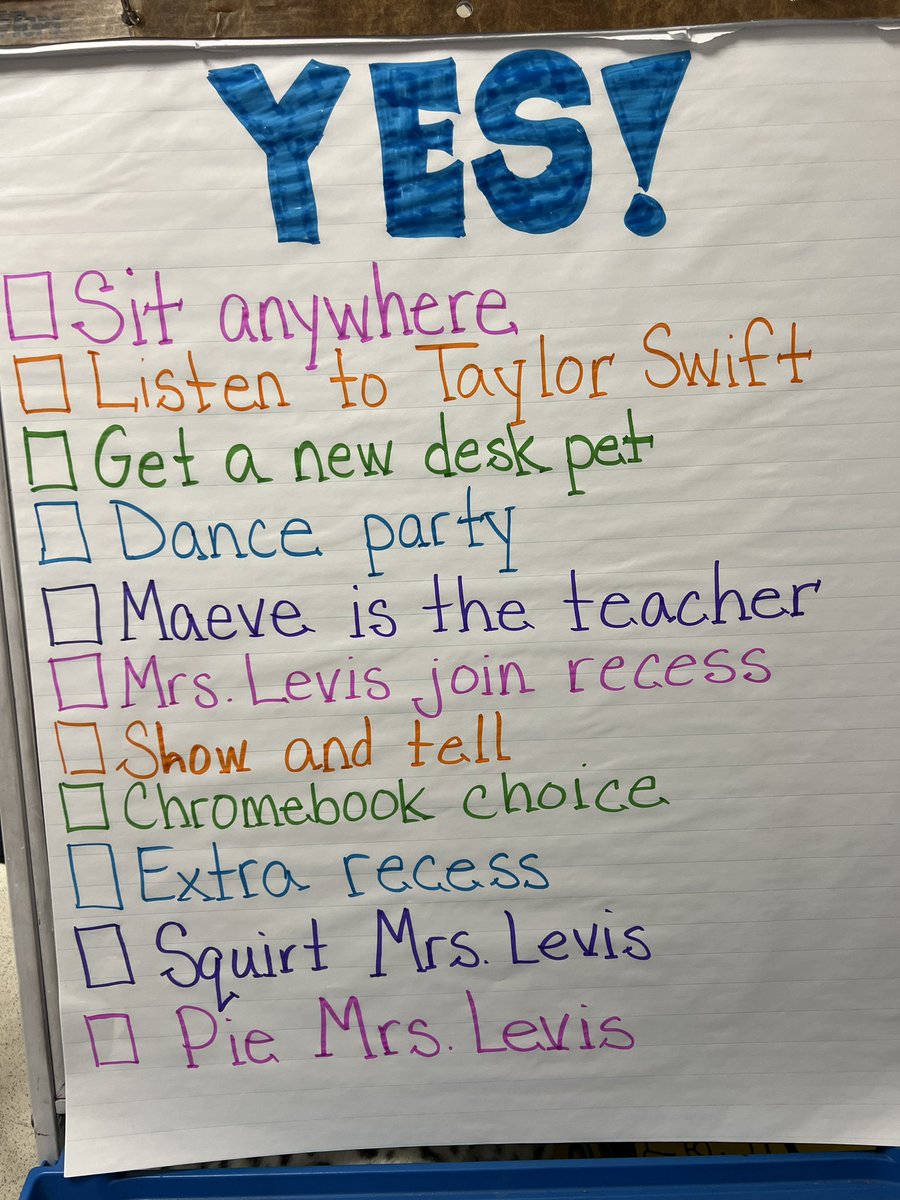 YES!
Sit anywhere
Listen to Taylor Swift
Get a new desk pet
Dance party
Maeve is the teacher
Mrs. Levis join recess
Show and tell
Chromebook choice
Extra recess
Squirt Mrs. Levis
Pie Mrs. Levis